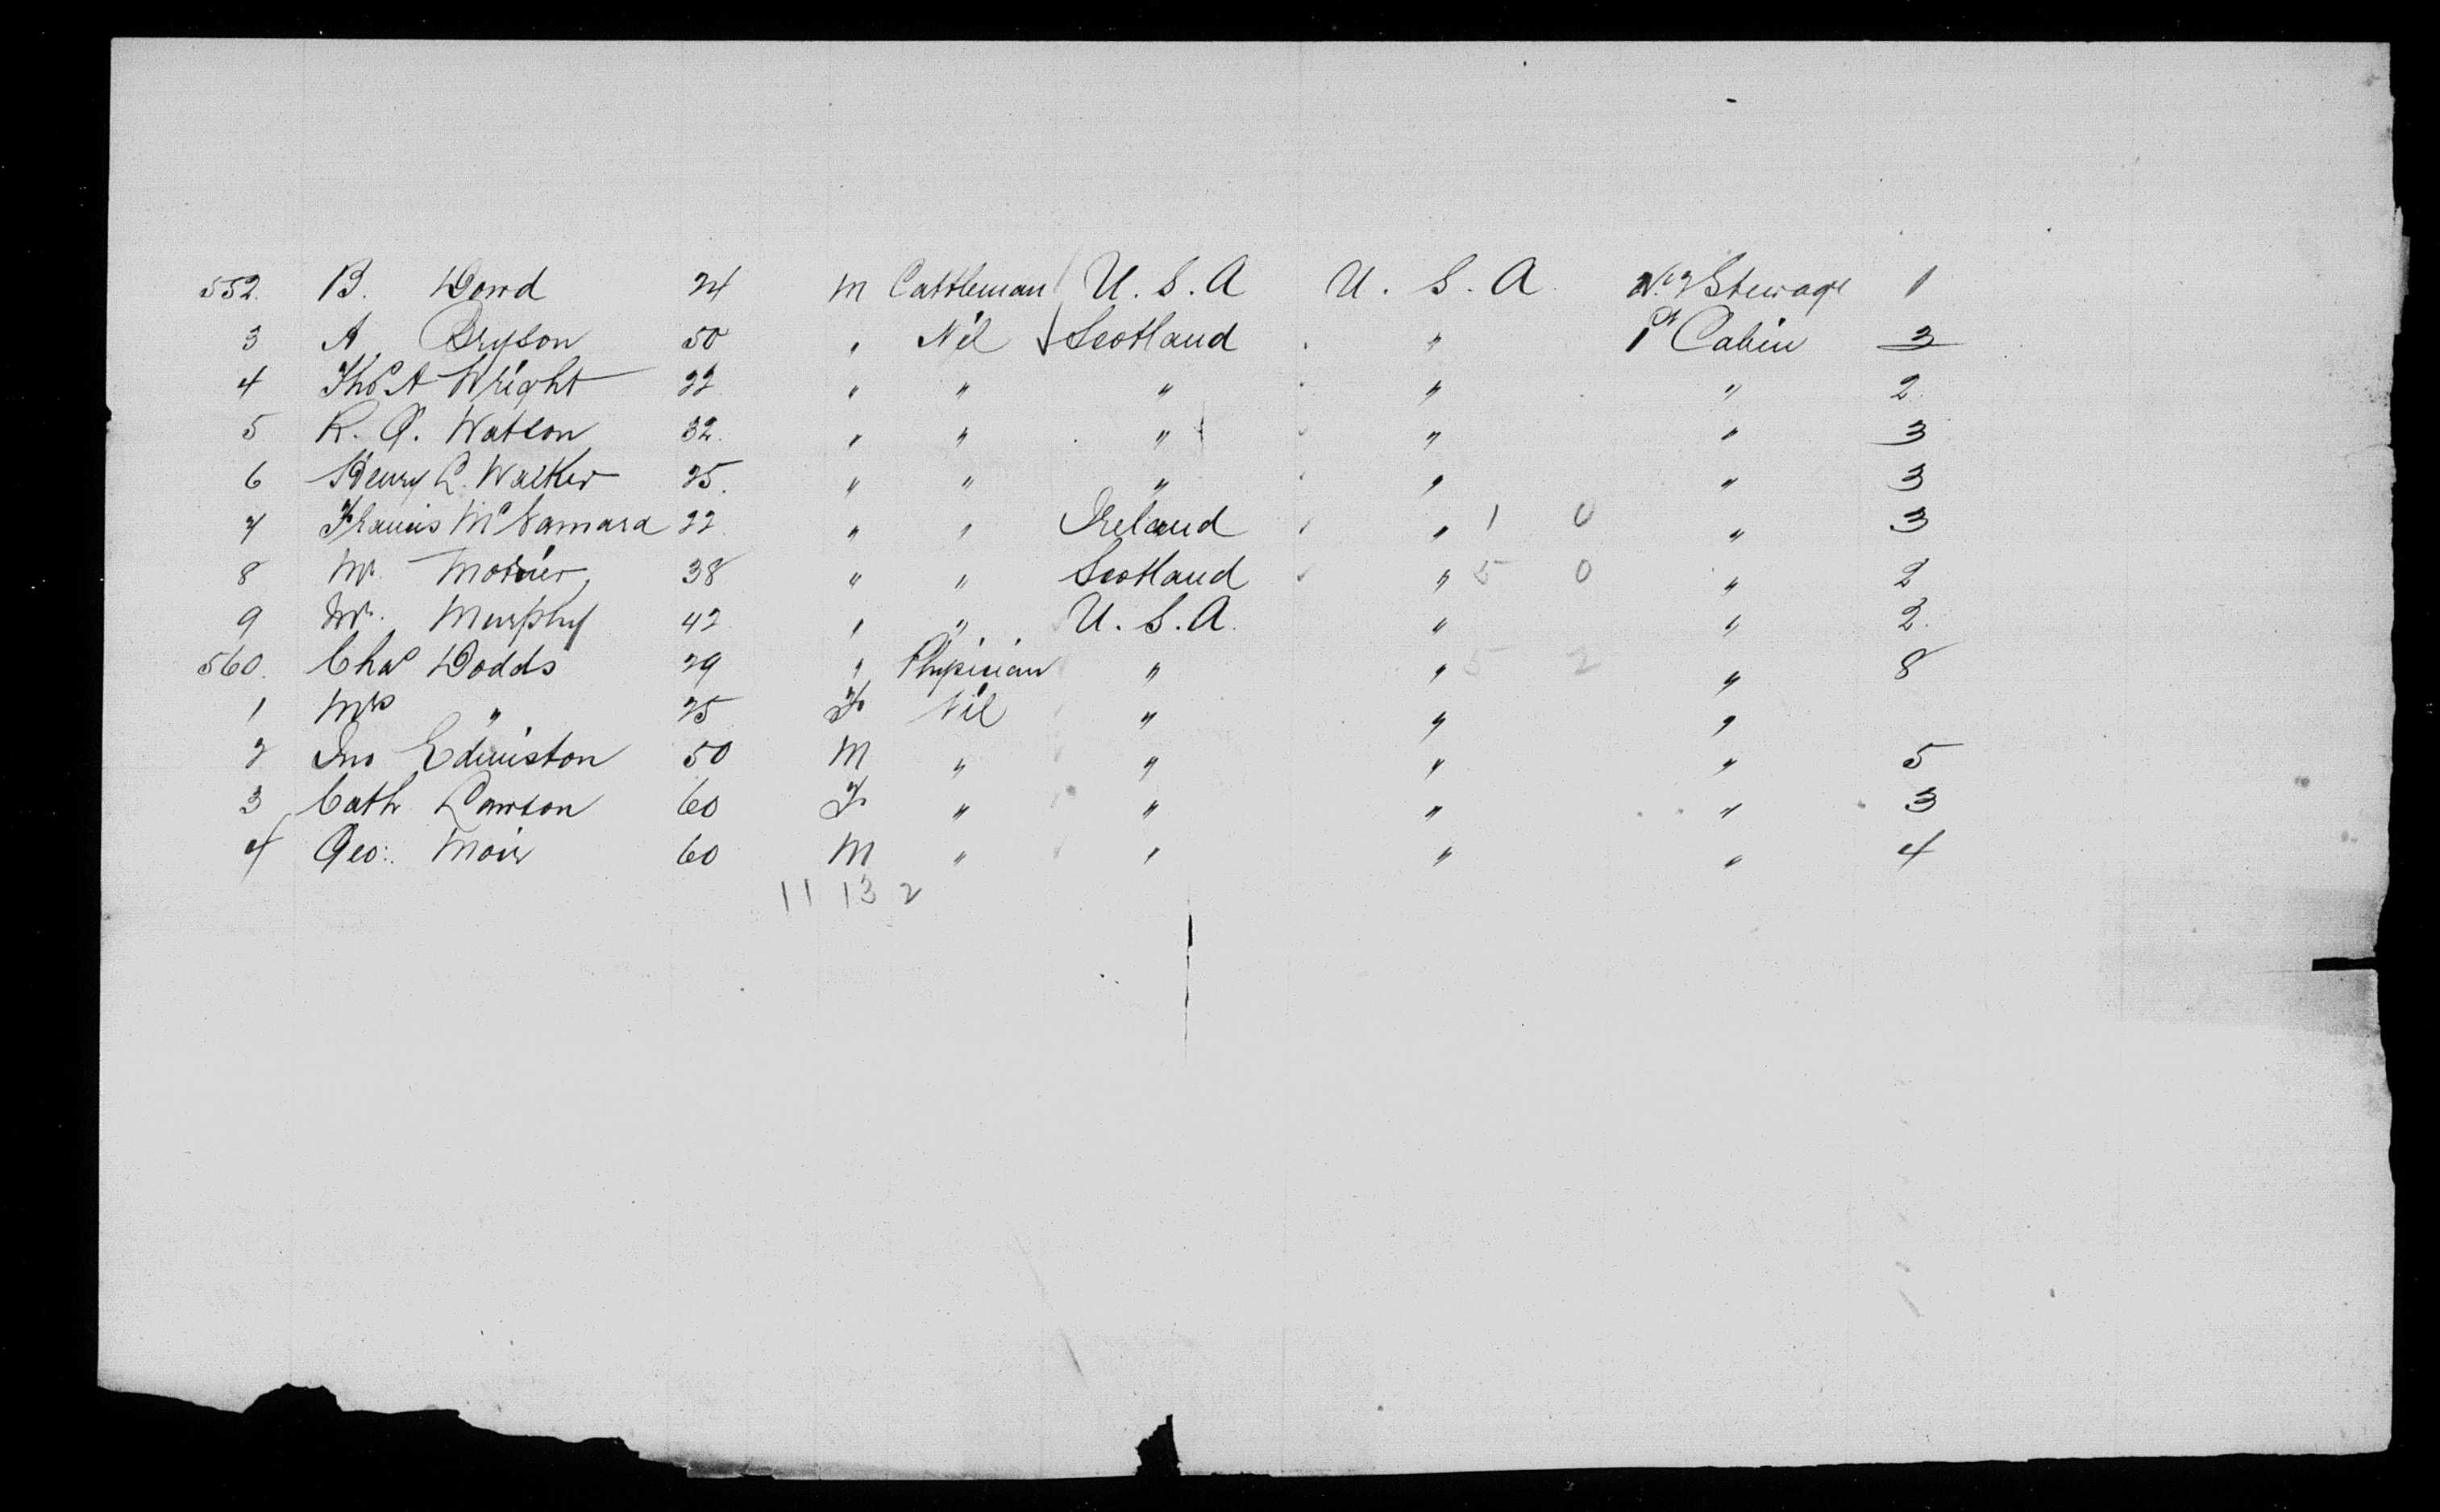 552. B. Dowd 24 M Cattleman U. S. A U. S. A. No. 2 Steerage 1
3 A Bryson 50 " Nil Scotland " 1st Cabin 3
4 Thos A Wright 22 " " " " " 2
5 R. G. Watson 32 " " " " " 3
6 Henry C. Walker 25 " " " " " 3
7 Francis McNamara 22 " " Ireland " 1 0 " 3
8 Mr. 38 " " Scotland " 5 0 " 2
9 Mr. Murphy 42 " " U. S. A. " " 2
560. Chas Dodds 29 " Physician " " 5 2 " 8
1 Mrs " 25 F Nil " " "
2 Jno Edmiston 50 M " " " " 5
3 Cath Lawson 60 F " " " " 3
4 Geo: Moir 60 M " " " " 4
11 13 2